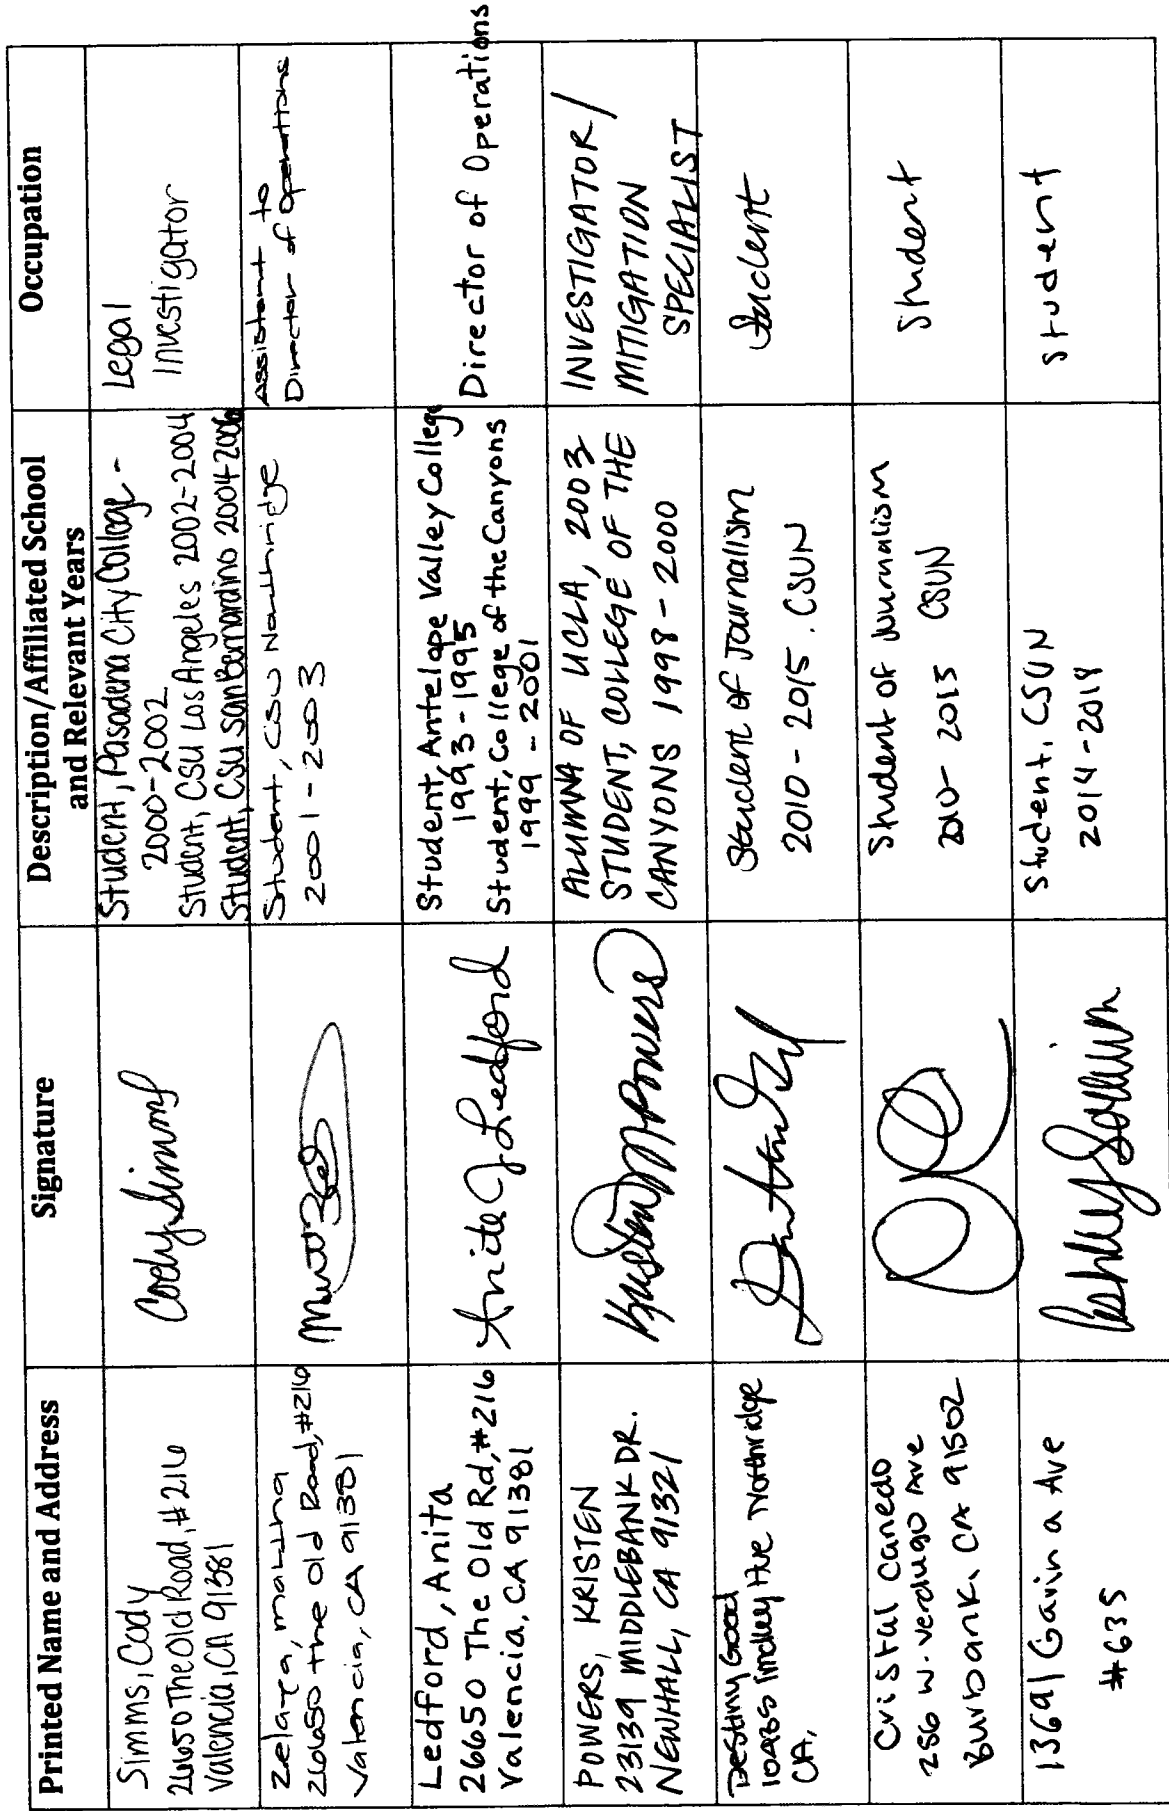 Printed Name and Address
Signature
Description/Affiliated School
and Relevant Years
Occupation
Simms, Cody
26650 The Old Road, #216
Valencia, CA 91381
Cody Simms
Student, Pasadena City College -
2000-2002
Student, CSU Los Angeles 2002-2004
Student, CSU San Bernardino 2004-2006
Legal
Investigator
Zelaya, Martha
26650 The Old Road, #216
Valencia, CA 91381
Student, CSU Northridge
2001-2003
Assistant to
Director of Operations
Ledford, Anita
26650 The Old Rd, #216
Valencia, CA 91381
Anita J Ledford
Student, Antelope Valley College
1993-1995
Student, College of the Canyons
1999-2001
Director of Operations
POWERS, KRISTEN
23139 MIDDLEBANK DR.
NEWHALL, CA 91321
Kristen M Powers
ALUMNA OF UCLA, 2003
STUDENT, COLLEGE OF THE
CANYONS 1998-2000
INVESTIGATOR/
MITIGATION
SPECIALIST
Destiny Good
Ave Northridge
CA,
Student of Journalism
2010-2015. CSUN
Student
Cristal Canedo
256 W. Verdugo Ave
Burbank, CA 91502
Student of Journalism
2010- 2015 CSUN
Student
13691 Gavin a Ave
#635
Student, CSUN
2014-2018
Student